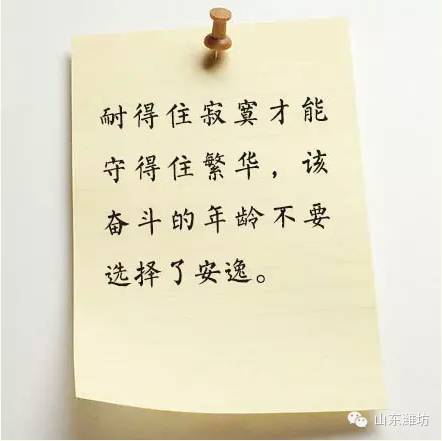 耐得住寂寞才能
守得住繁华，该
奋斗的年龄不要
选择了安逸。
山东潍坊